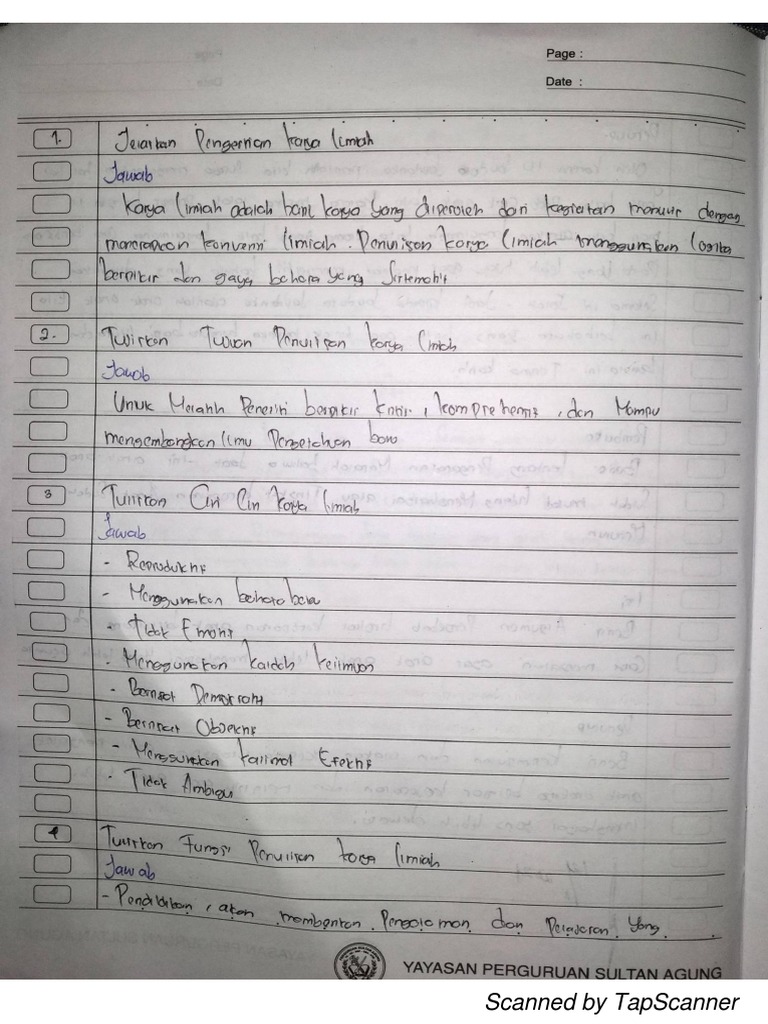 Page :
Date :
1. Jelaskan Pengertian karya Ilmiah
Jawab
Karya Ilmiah adalah hasil karya yang diperoleh dari kegiatan menulis dengan
menerapkan konvensi Ilmiah. Penulisan karya Ilmiah menggunakan Logika
berpikir dan gaya bahasa yang Sistematis
2. Tuliskan Tujuan Penulisan karya Ilmiah
Jawab
Untuk Melatih Peneliti berpikir kritis, komprehensif, dan Mampu
mengembangkan Ilmu Pengetahuan baru
3 Tuliskan Ciri Ciri karya Ilmiah
Jawab
- Reproduktif
- Menggunakan bahasa baku
- Tidak Emosi
- Menggunakan kaidah keilmuan
- Bersifat
- Bersifat Objektif
- Menggunakan kalimat Efektif
- Tidak Ambigu
4 Tuliskan Fungsi Penulisan karya Ilmiah
Jawab
- Pendidikan, akan membentuk Pengalaman dan Pelajaran yang
YAYASAN PERGURUAN SULTAN AGUNG
Scanned by TapScanner